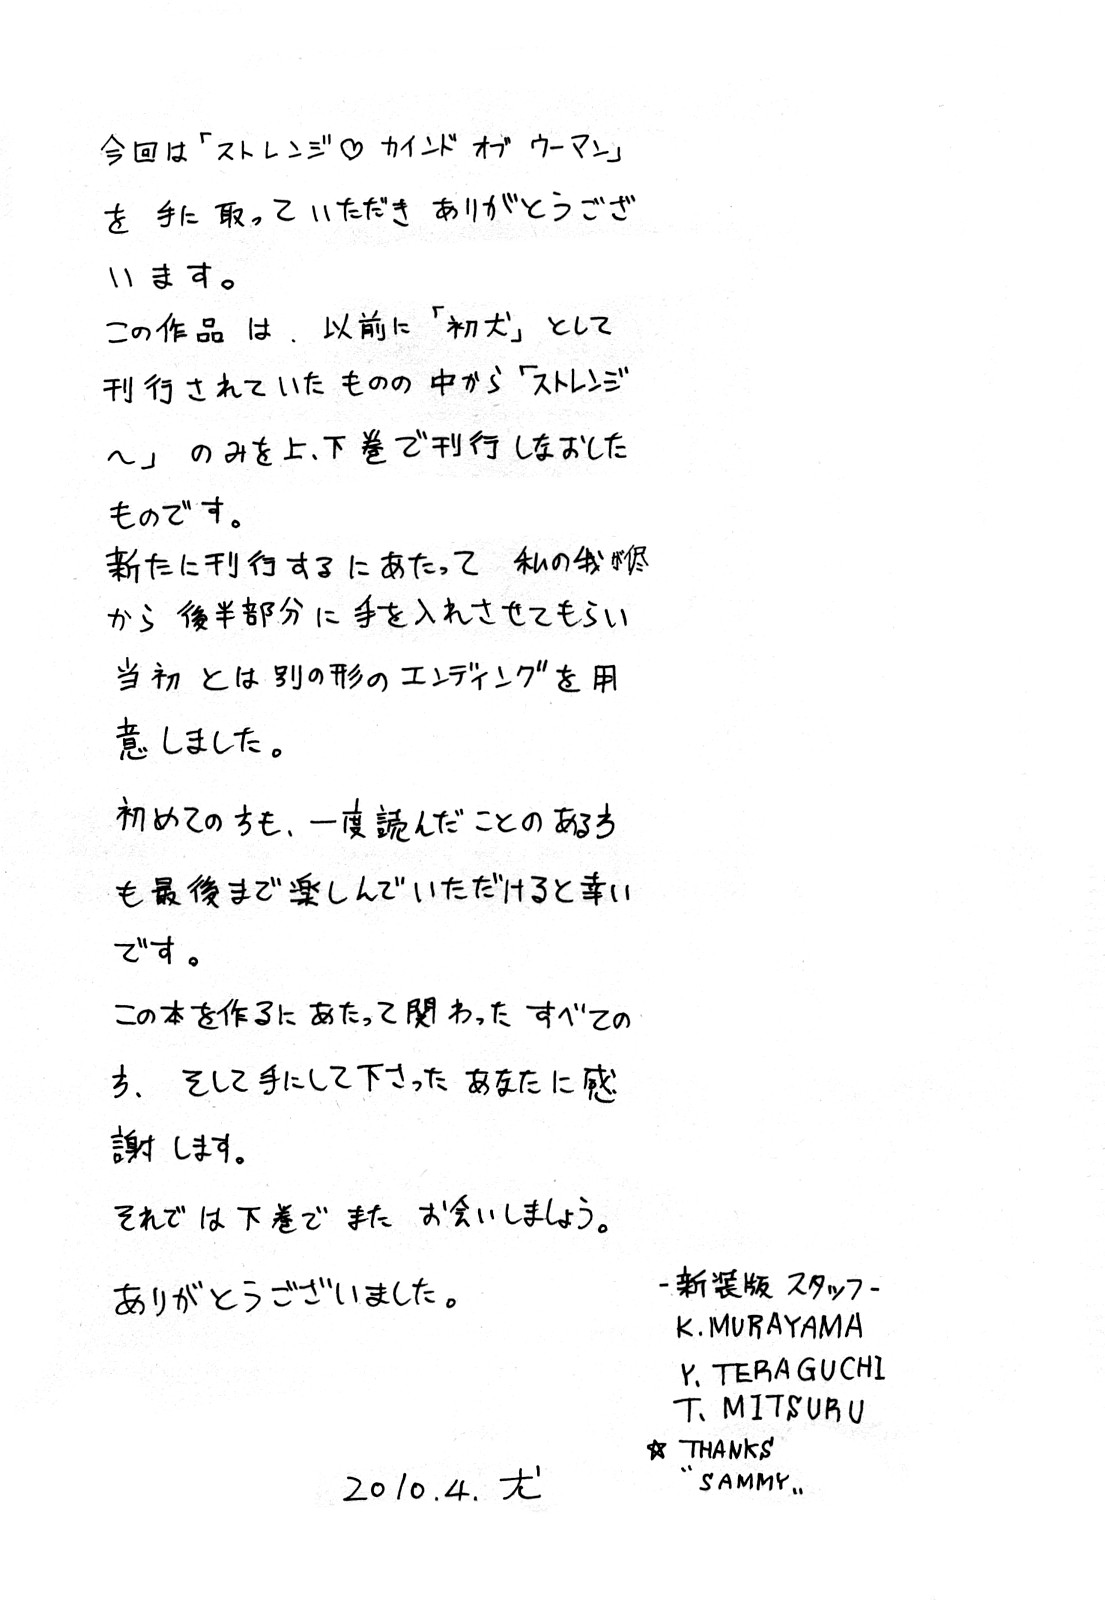 今回は「ストレンジ♡カインド オブ ウーマン」
を 手に 取っていただき ありがとうござ
います。
この作品 は、以前に「初犬」として
刊行されていた ものの 中から「ストレンジ
〜」 のみを上、下巻で刊行しなおした
ものです。
新たに刊行するにあたって 私の我が侭
から 後半部分に手を入れさせてもらい
当初 とは別の形の エンディングを用
意しました。
初めての方も、一度読んだことのある方
も最後まで楽しんでいただけると幸い
です。
この本を作るにあたって関わった すべての
方、 そして手にして下さった あなたに感
謝します。
それでは下巻で また お会いしましょう。
ありがとうございました。
-新装版 スタッフ-
K.MURAYAMA
Y. TERAGUCHI
T. MITSURU
☆ THANKS
"SAMMY„
2010.4.